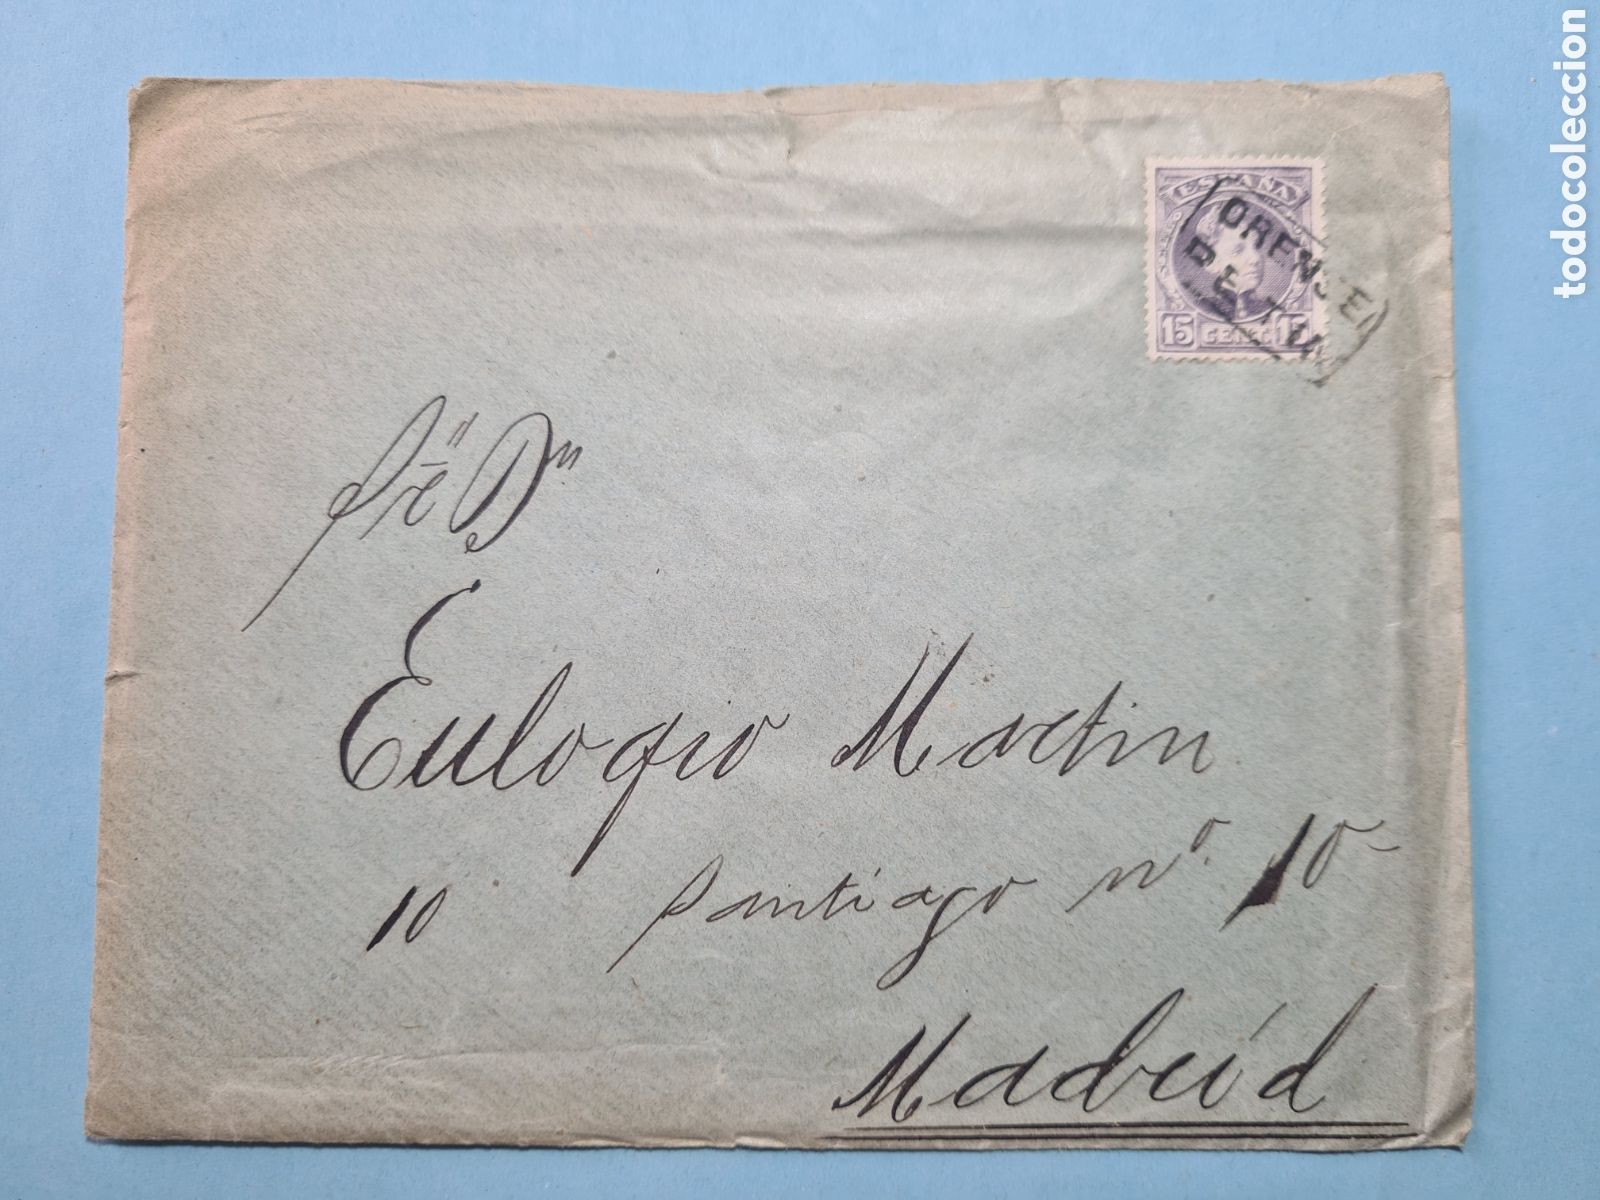 todocoleccion
ESPAÑA
15 CENT. 15
ORENSE
Sr. Dn
Eulogio Martin
10 Santiago nº. 10-
Madrid